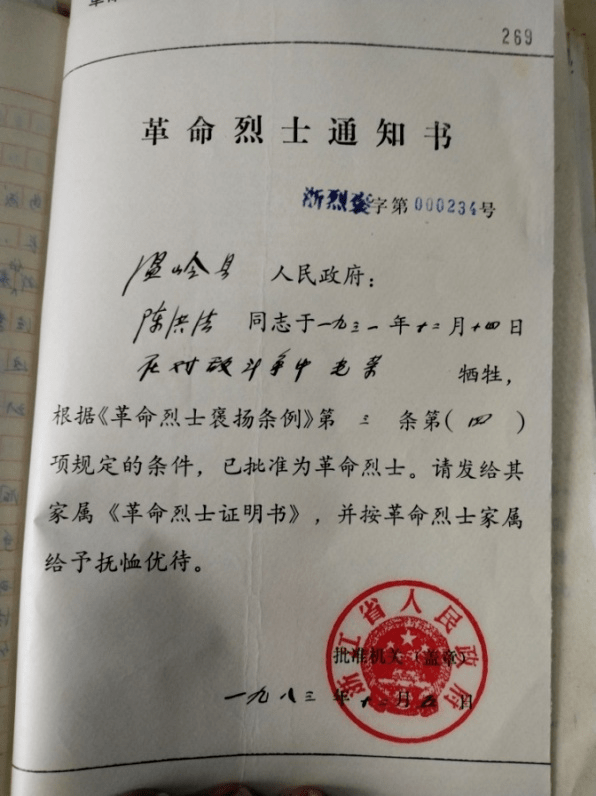 269
革命烈士通知书
浙烈褒字第000234号
温岭县 人民政府：
陈洪法 同志于一九三一年十二月十四日
在对敌斗争中光荣 牺牲，
根据《革命烈士褒扬条例》第三条第(四)
项规定的条件，已批准为革命烈士。请发给其
家属《革命烈士证明书》，并按革命烈士家属
给予抚恤优待。
浙江省人民政府
批准机关（盖章）
一九八三年十二月五日